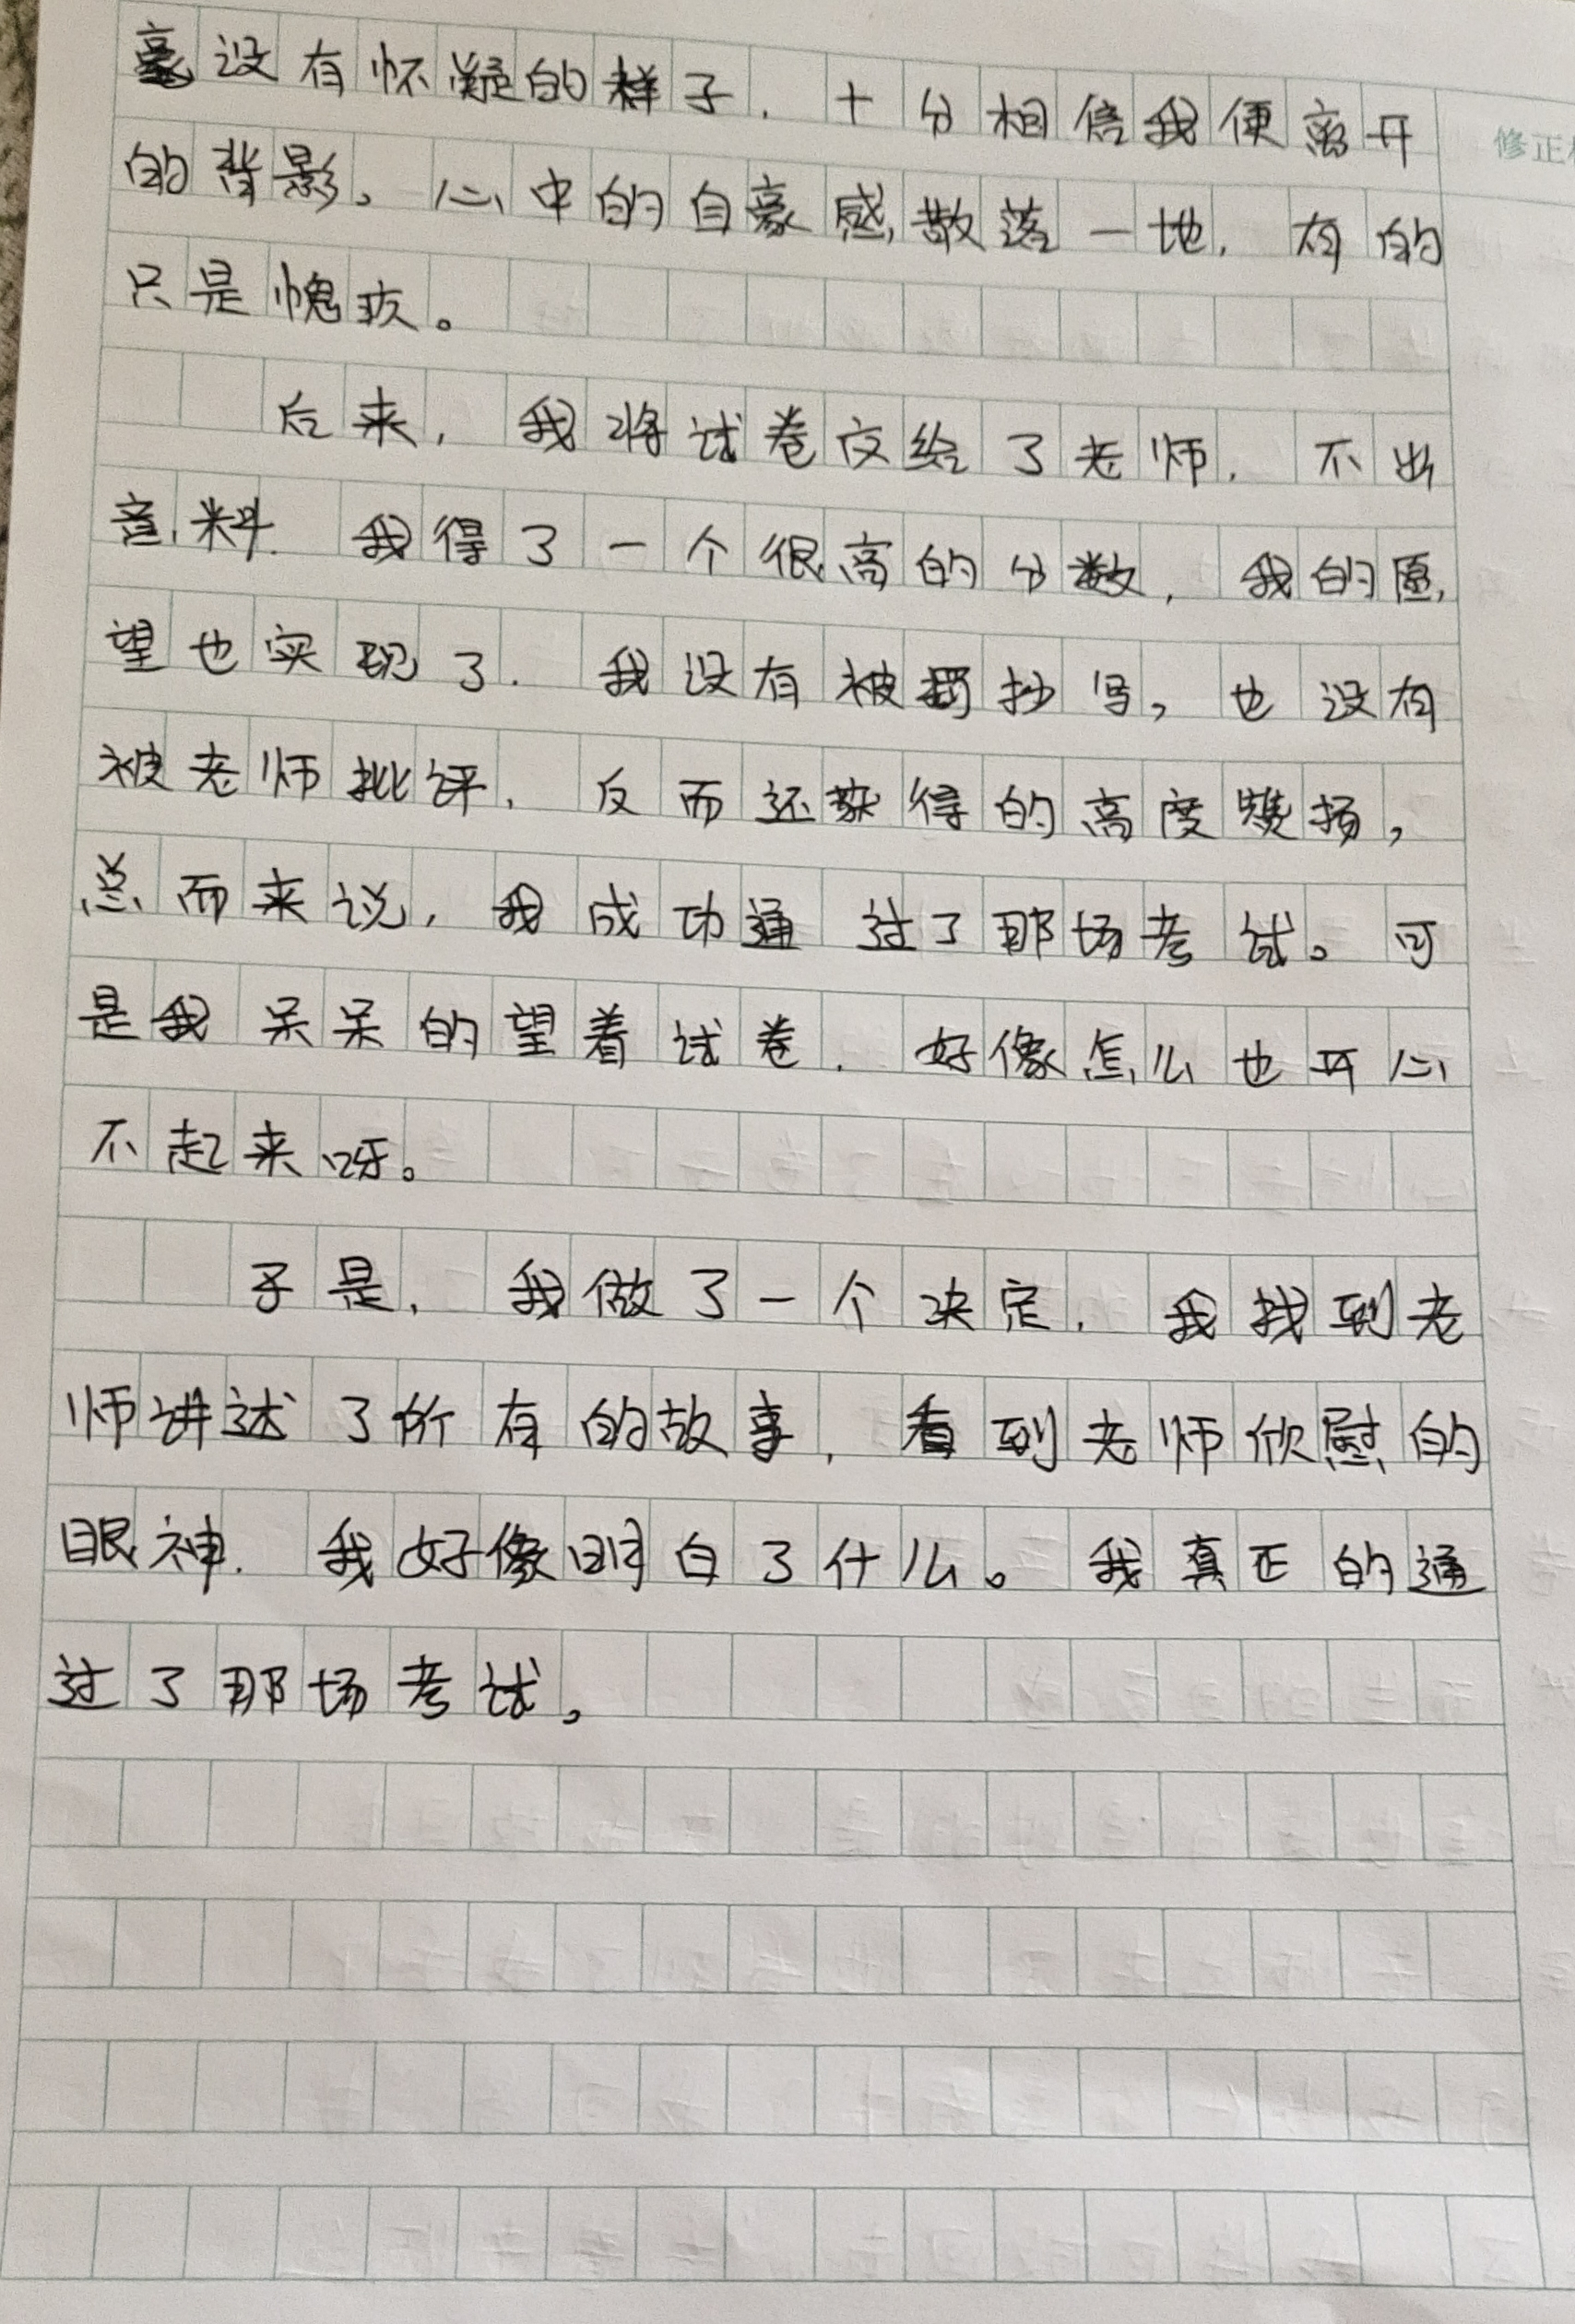 毫没有怀凝的样子，十分相信我便离开
修正
的背影。心中的自豪感散落一地，有的
只是愧疚。
后来，我将试卷交给了老师，不出
意料，我得了一个很高的分数，我的愿
望也实现了，我没有被罚抄写，也没有
被老师批评，反而还获得的高度赞扬，
总而来说，我成功通过了那场考试。可
是我呆呆的望着试卷，好像怎么也开心
不起来呀。
于是，我做了一个决定，我找到老
师讲述了所有的故事，看到老师欣慰的
眼神，我好像明白了什么。我真正的通
过了那场考试。